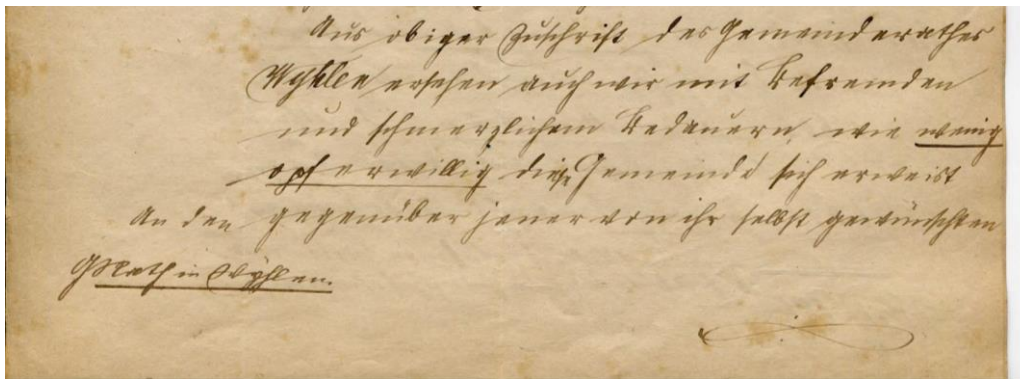 Aus obiger Zuschrift des Gemeinderathes
Wyhlen ersehen auch wir mit Befremden
und schmerzlichem Bedauern, wie wenig
opferwillig diese Gemeinde sich erweist
An den gegenüber jener von ihr selbst gewünschten
GRath in Wyhlen.